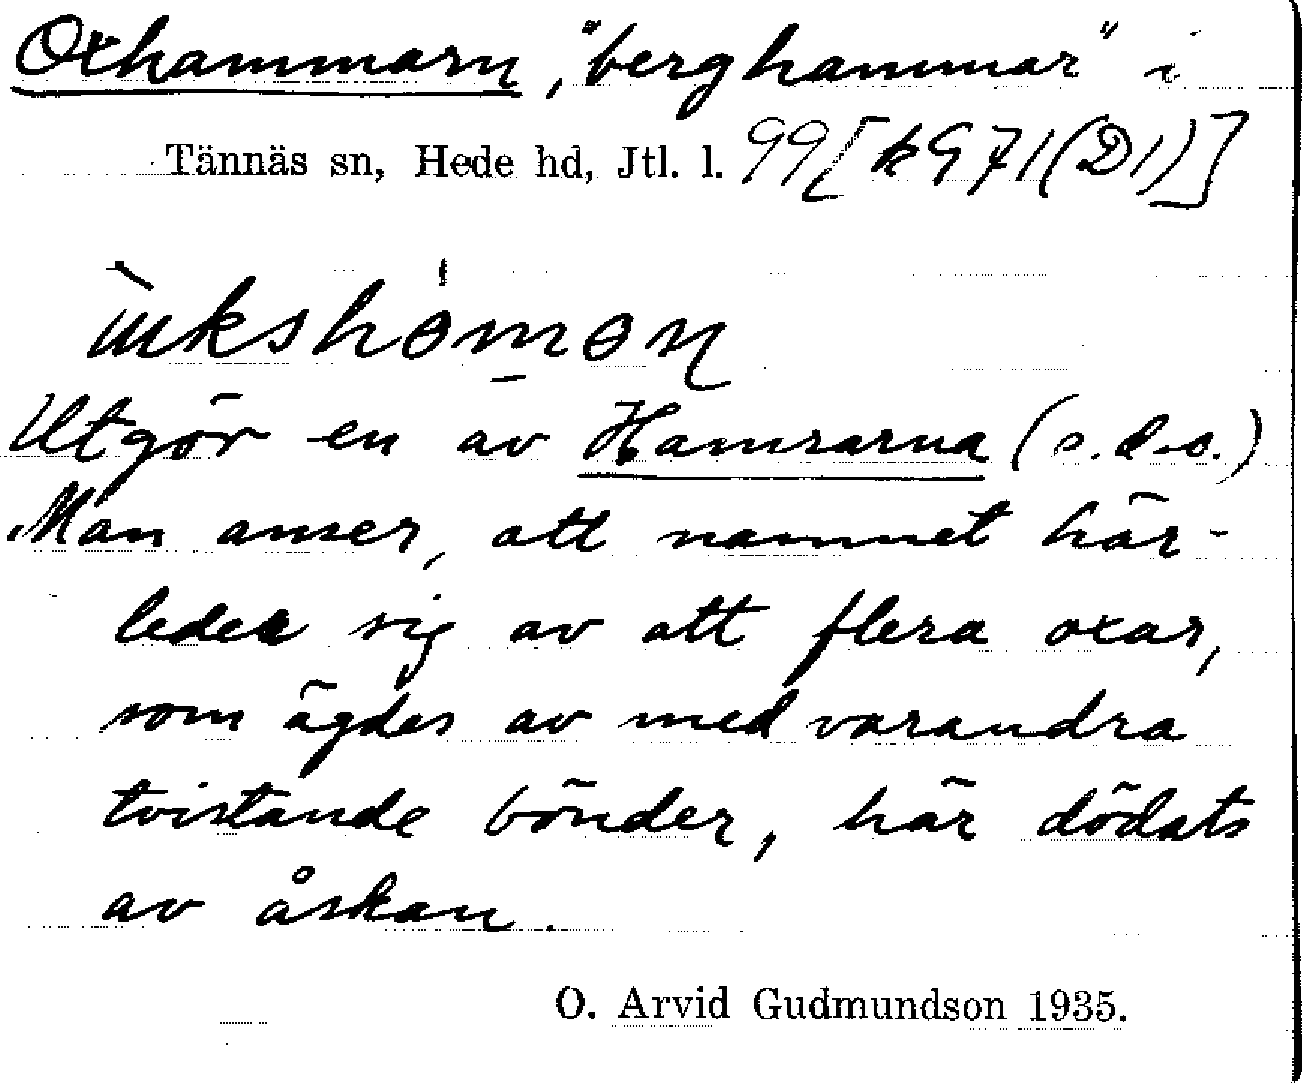 Oxhammarn, "berghammar" i
Tännäs sn, Hede hd, Jtl. l. 99 [k 971 (D1)]
Utgör en av Hamrarna (s.d.o.)
Man anser, att namnet här-
leder sig av att flera oxar,
som ägdes av med varandra
tvistande bönder, här dödats
av åskan.
O. Arvid Gudmundson 1935.